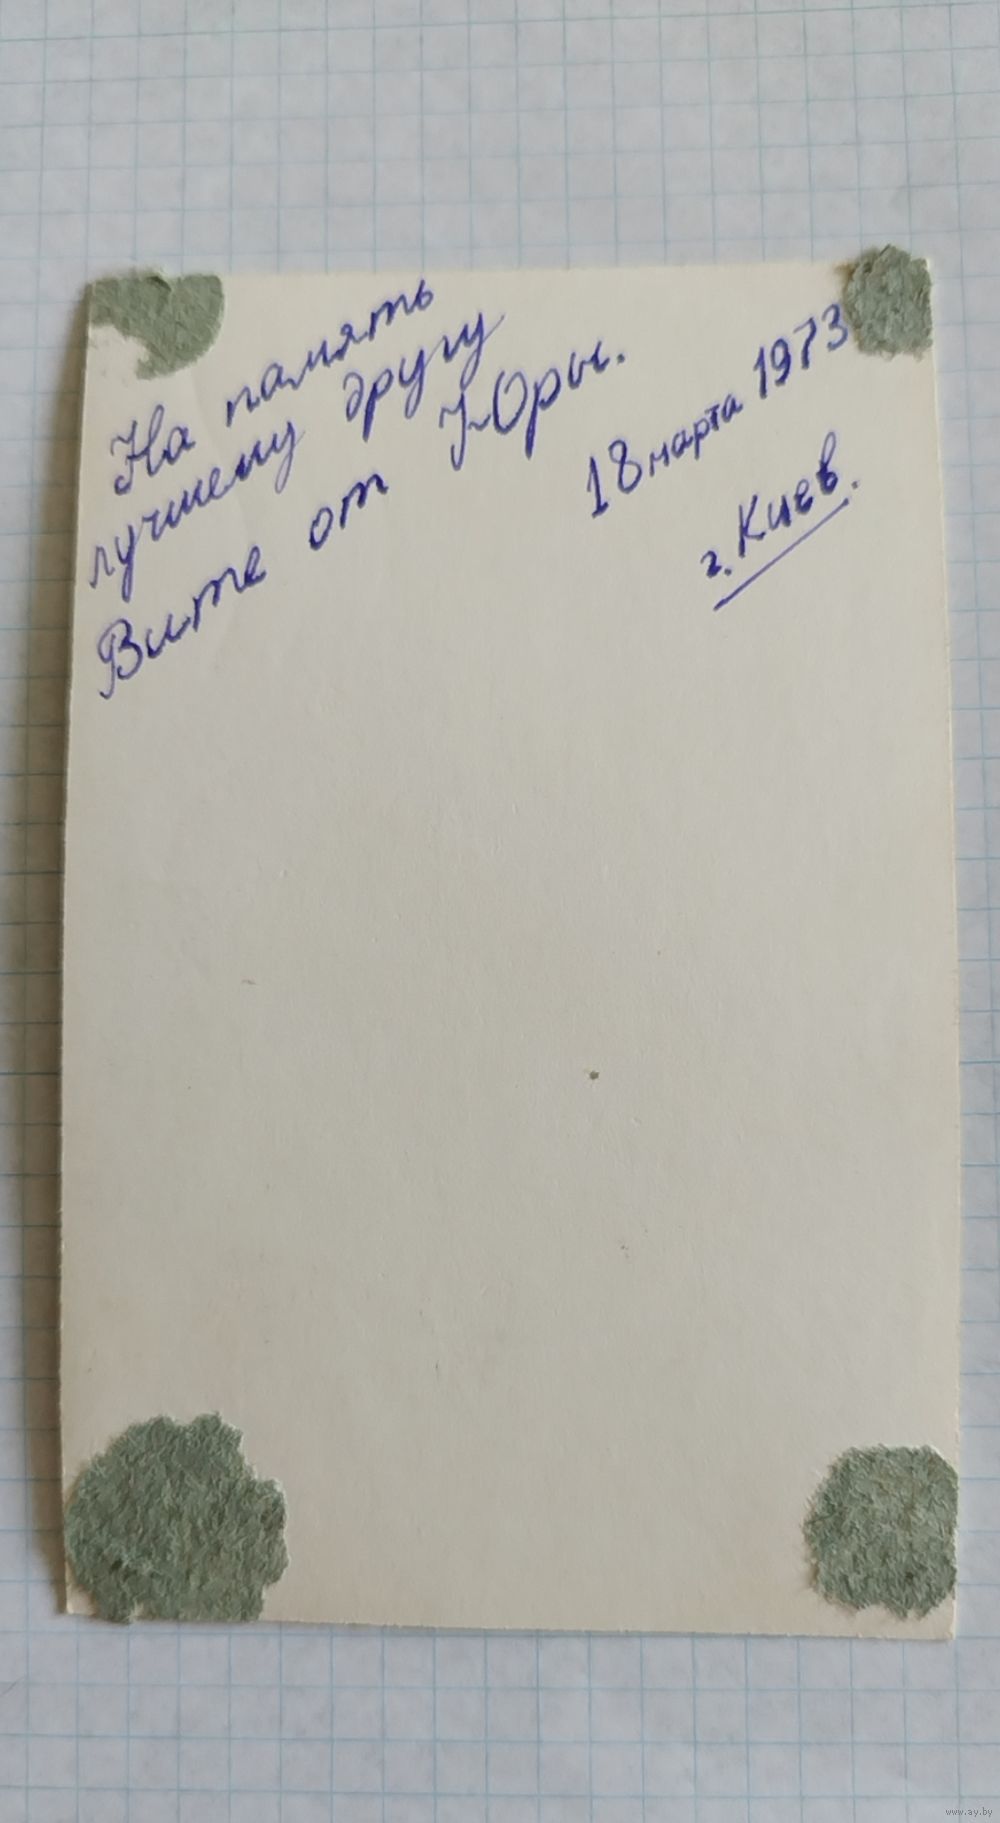 На память
лучшему другу
Вите от Юры.
18 марта 1973
г. Киев.
www.ay.by